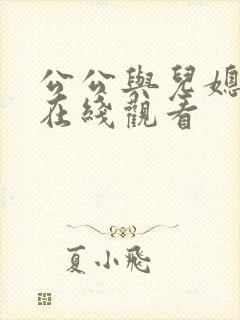 公公與兒媳
在綫觀看
夏小飛